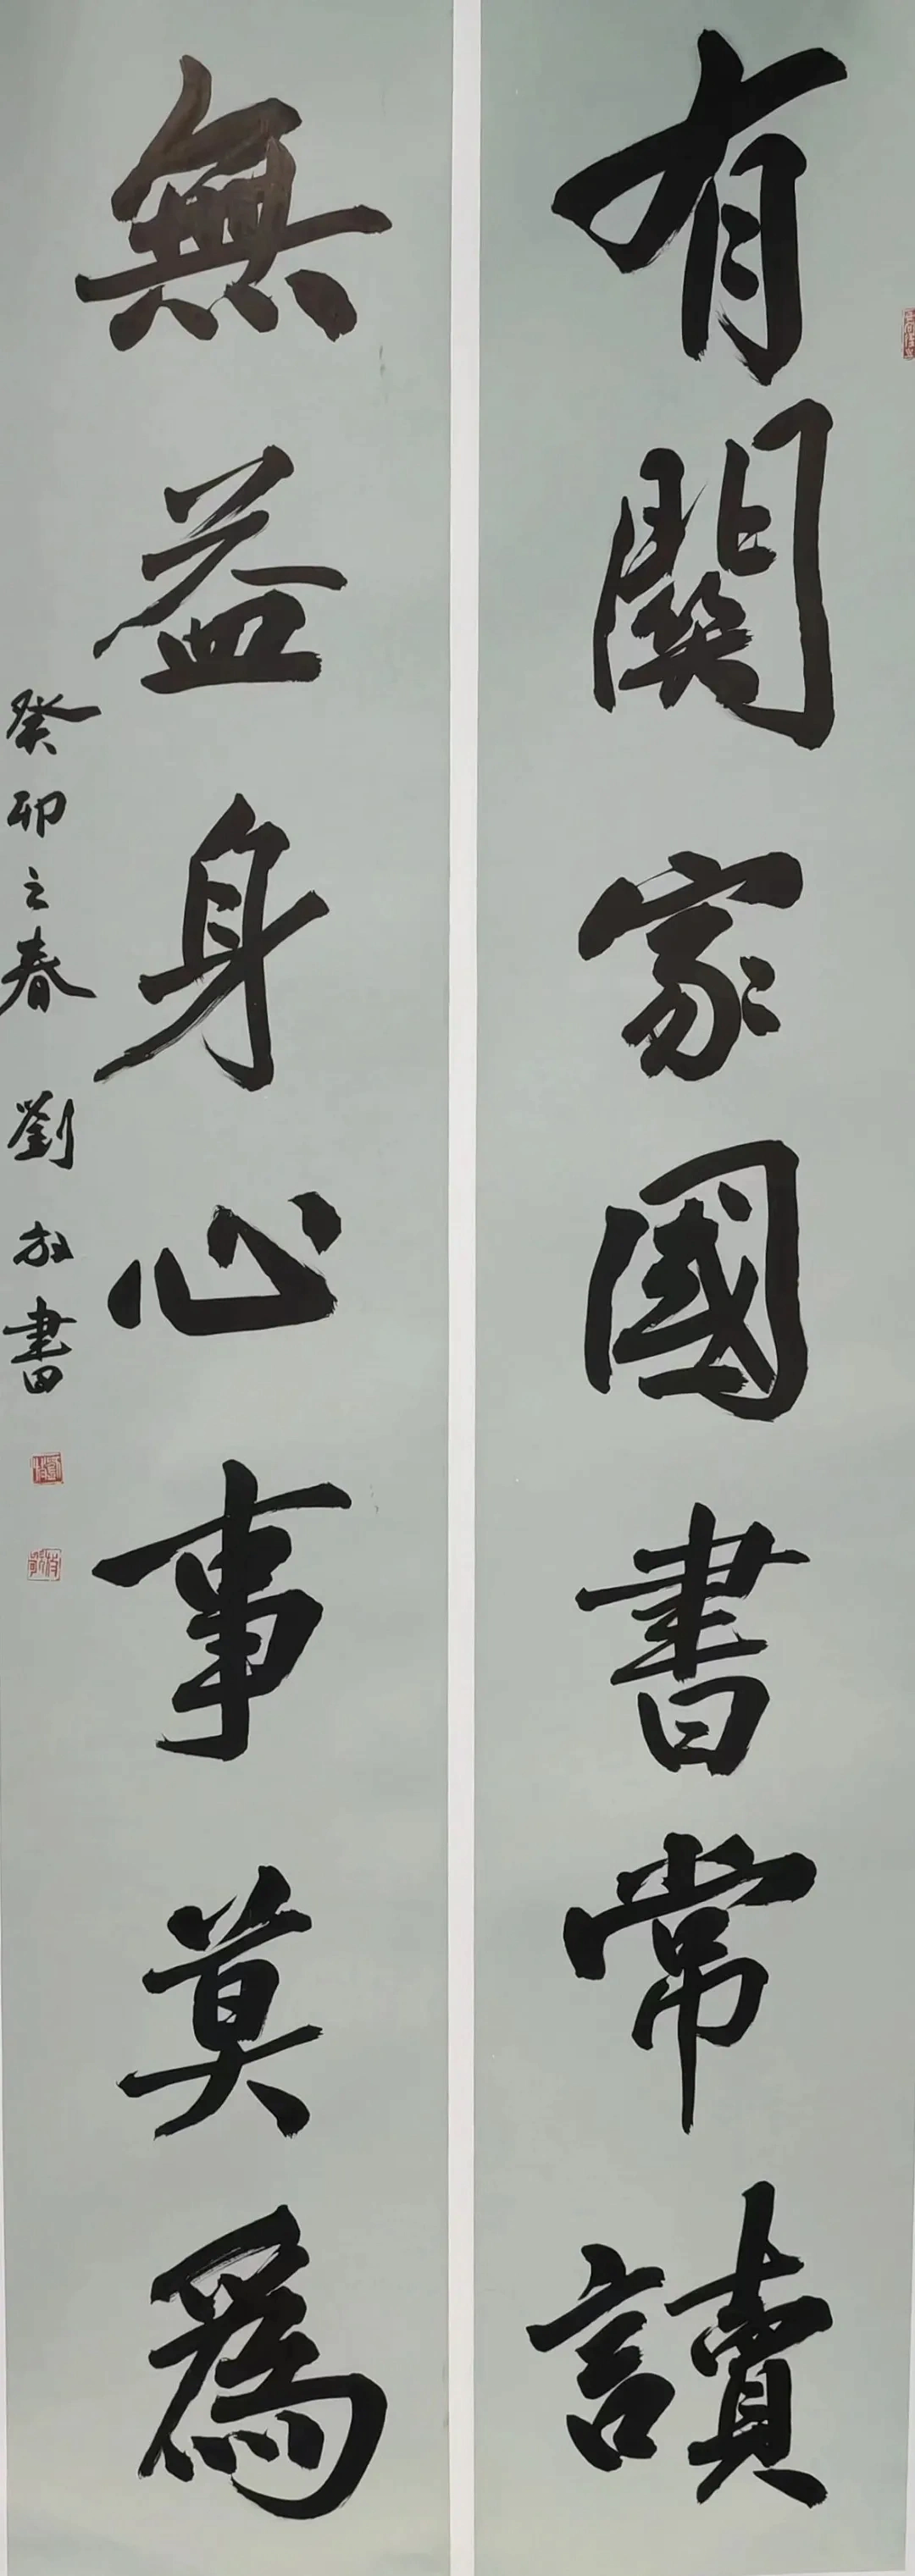 有關家國書常讀
無益身心事莫為
癸卯之春 劉放書